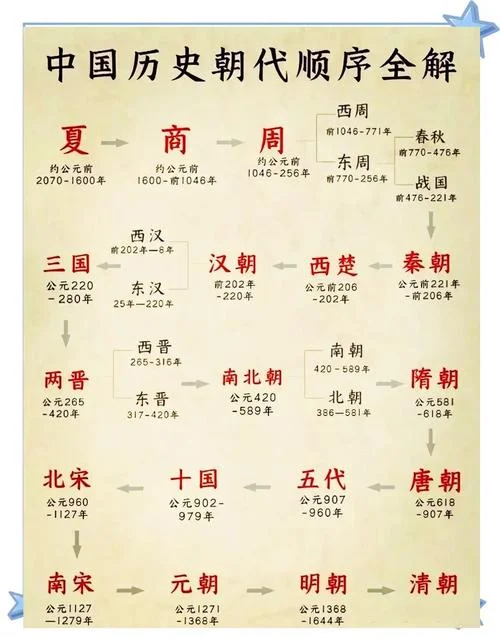 中国历史朝代顺序全解
夏
约公元前
2070-1600年
商
约公元前
1600-前1046年
周
约公元前
1046-256年
西周
前1046-771年
东周
前770-256年
春秋
前770-476年
战国
前476-221年
秦朝
公元前221年
-前206年
西楚
公元前206
-202年
汉朝
前202年
-220年
西汉
前202年—8年
东汉
25年—220年
三国
公元220
-280年
两晋
公元265
-420年
西晋
265-316年
东晋
317-420年
南北朝
公元420
-589年
南朝
420-589年
北朝
386—581年
隋朝
公元581
-618年
唐朝
公元618
-907年
五代
公元907
-960年
十国
公元902-
979年
北宋
公元960
-1127年
南宋
公元1127
—1279年
元朝
公元1271
-1368年
明朝
公元1368
-1644年
清朝